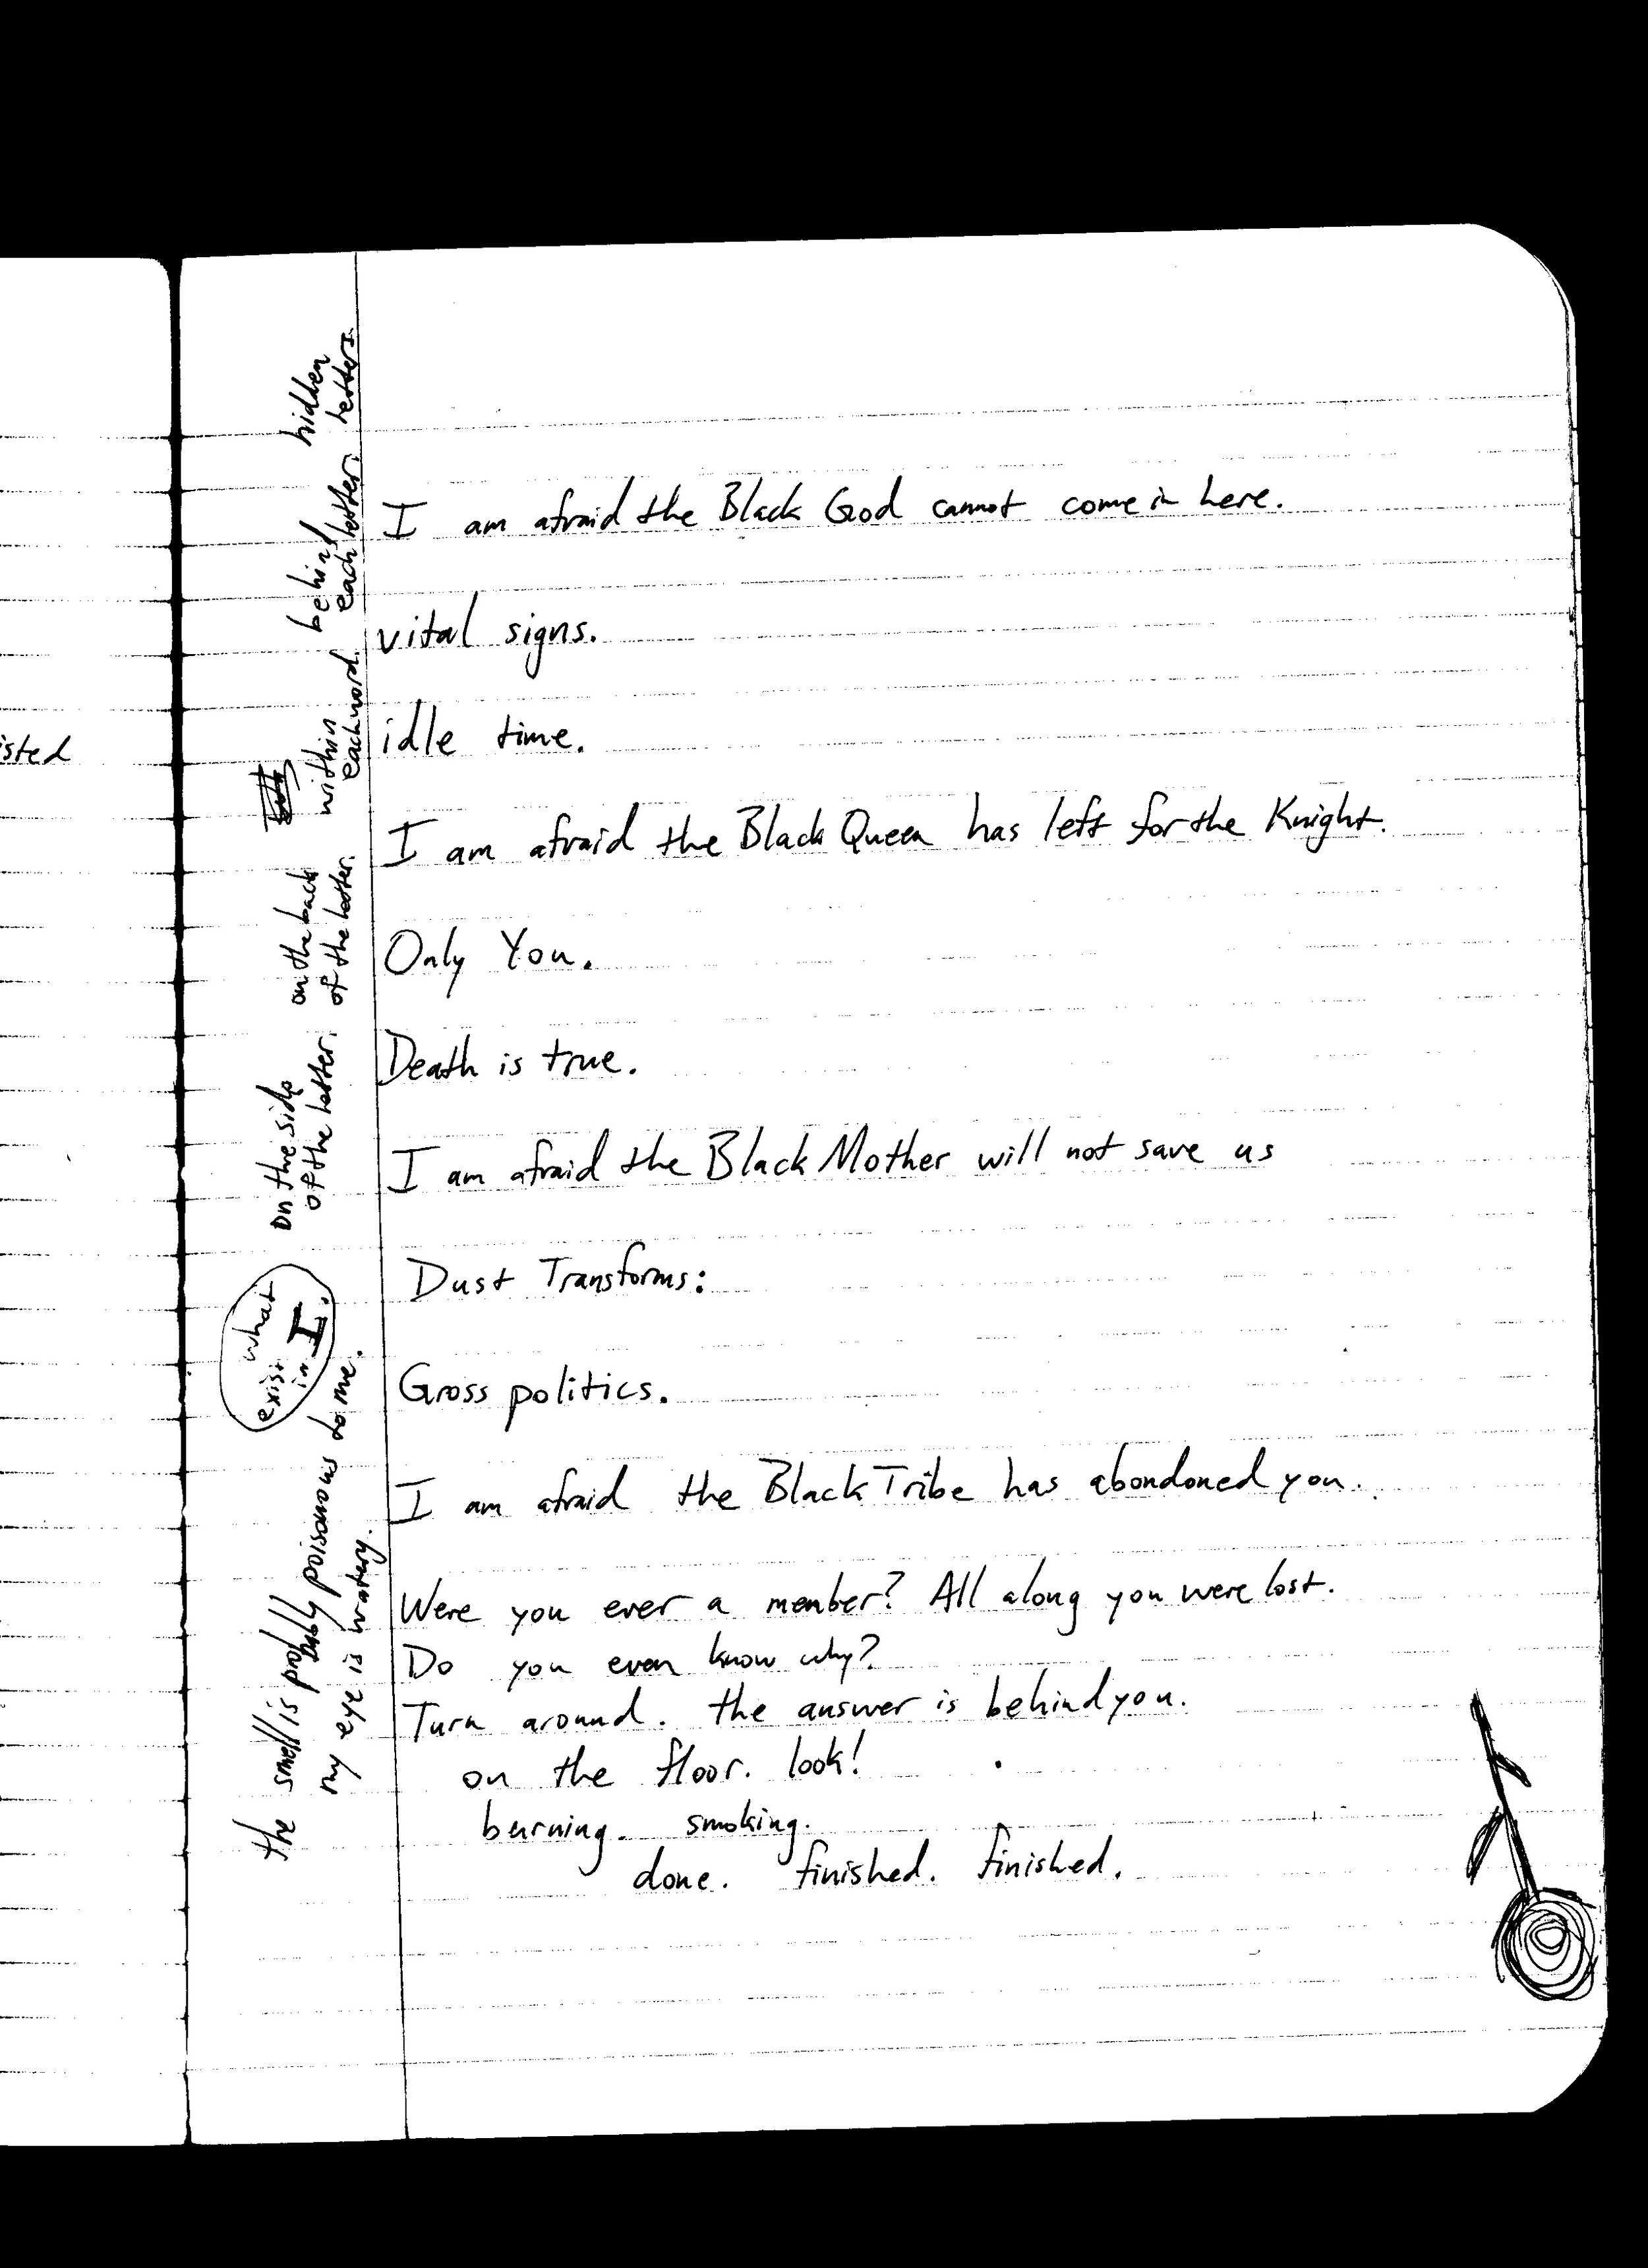 I am afraid the Black God cannot come in here.
vital signs.
idle time.
I am afraid the Black Queen has left for the Knight.
Only You.
Death is true.
I am afraid the Black Mother will not save us
Dust Transforms:
Gross politics.
I am afraid the Black Tribe has abondoned you.
Were you ever a member? All along you were lost.
Do you even know why?
Turn around. the answer is behind you.
on the floor. look!
burning. smoking.
done. finished. finished.
the smell is probably poisonous to me.
my eye is watery.
what
exist
in I.
on the side
of the letter.
on the back
of the letter.
within
each word.
behind
each letter.
hidden
letters.
isted